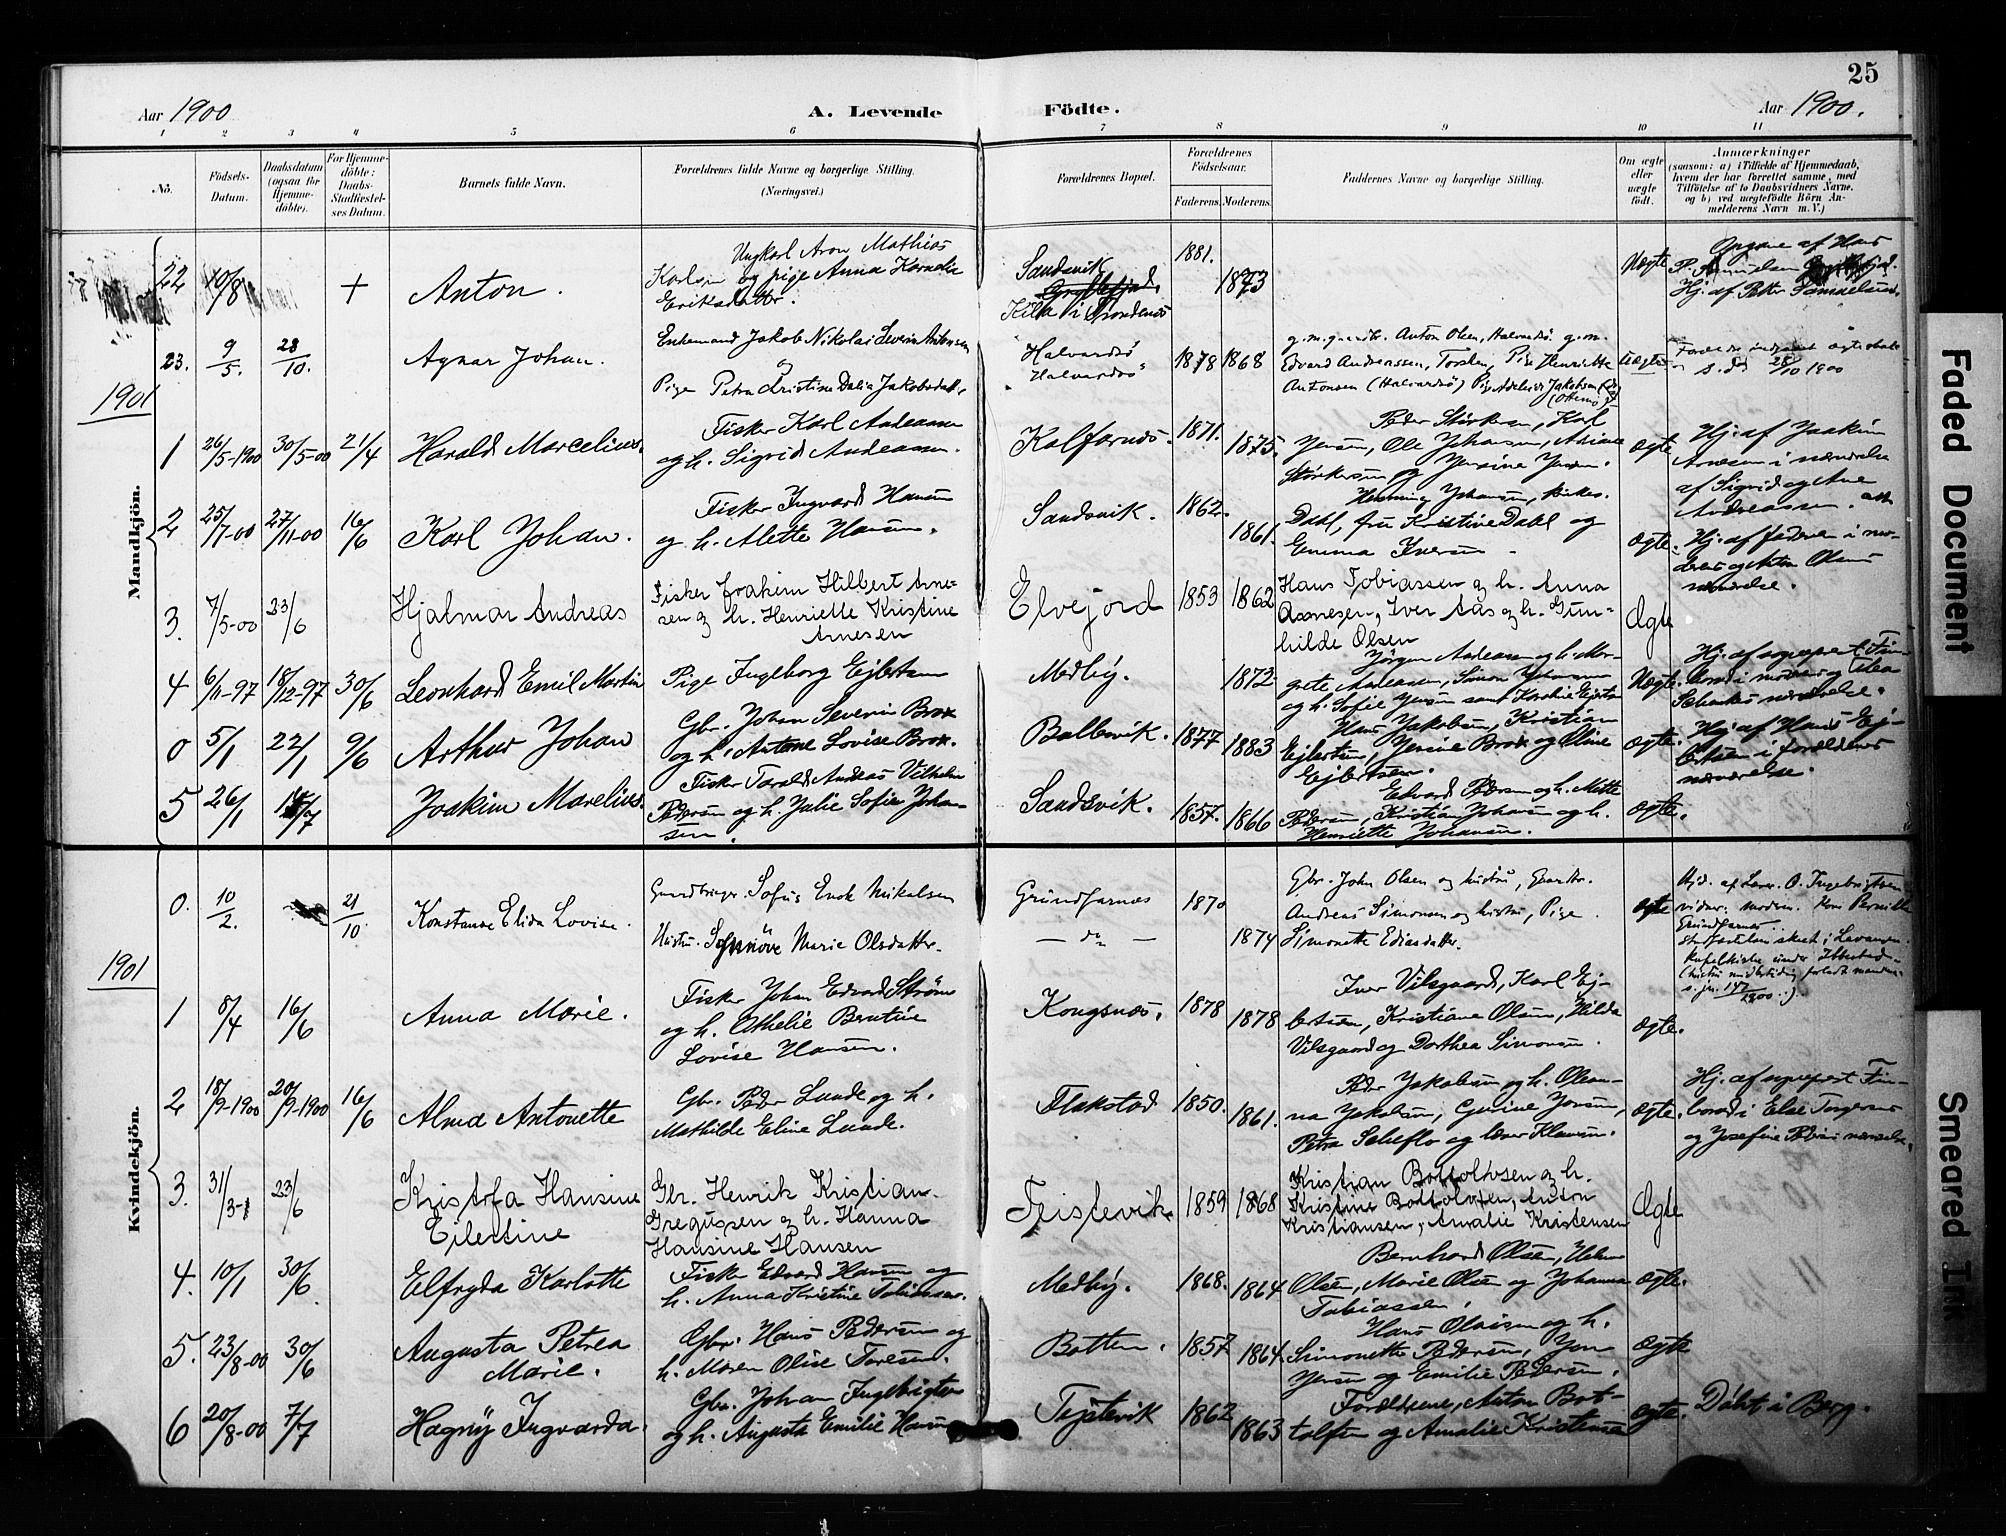 25
Aar 1900
A. Levende
Födte.
Aar 1900.
1 2 3 4 5 6 7 8 9 10 11
No.
Födsels-
Datum.
Daabsdatum
(ogsaa for
Hjemme-
döbte).
For Hjemme-
döbte:
Daabs-
Stadfæstel-
ses Datum.
Barnets fulde Navn.
Forældrenes fulde Navne og borgerlige Stilling.
(Næringsvei.)
Forældrenes Bopæl.
Forældrenes
Födselsaar.
Faderens. Moderens.
Faddernes Navne og borgerlige Stilling.
Om ægte
eller
uægte
födt.
Anmærkninger
(saasom: a) i Tilfælde af Hjemmedaab,
hvem der har forrettet samme, med
Tilföielse af to Daabsvidners Navne.
og b) ved uægtefödte Börn An-
melderens Navn m. V.)
Mandkjön.
22 10/8 + Anton.
Ungkarl Aron Mathias
Karlsen og pige Anna Kornelie
Eriksdatter.
Sandsvik
1881. 1873
Uægte
Opgave af Hans
Hj. af Petter Samuelsen.
23. 9/5. 28/10. Agnar Johan.
Enkemand Jakob Nikolai Severin Antonsen
og
Pige Petra Kristine Dalia Jakobsdatt.
Halvardsö
Halvardsö
1878 1868
Anton Olsen, Halvardsö g.m.
Edvard Andreassen, Torsken, Pige Henriette
Antonsen (Halvardsö) Pige Adelina Jakobsen
Uægte
25/10 1900
1901
1 26/5-1900 30/5-00 21/4 Harald Marcelius.
Fisker Karl Andreassen
og h. Sigrid Andreassen.
Kalfarnes. 1871. 1875.
Peder Störksen, Karl
Jensen, Ole Johansen, Adriane
Störksen og Jensine Jensen.
ægte
Hj. af Joakim
Arnesen i nærværelse
af Sigrid og Ane
Andreassen.
2 25/7-00 27/11-00 16/6 Karl Johan.
Fisker Ingvard Hansen
og h. Alette Hansen.
Sandsvik. 1862. 1861.
Henning Johansen, kirkes.
Dahl, fru Kristine Dahl og
Emma Iversen
ægte.
Hj. af faderen i mo-
deres og Anton Olsens
nærværelse.
3. 7/5-00 23/6 Hjalmar Andreas
Fisker Joakim Hilbert Arne-
sen og h. Henriette Kristine
Arnesen
Elvejord 1853 1862
Hans Tobiassen og h. Anna
Asnesen, Iver Aas og h. Gun-
hilde Olsen
Ægte
4 6/11-97 18/12-97 30/6 Leonhard Emil Martin
Pige Ingeborg Ejlertsen
Medby. 1872
Jörgen Andreassen og h. Mar-
grete Andreassen, Simon Johansen
og h. Sofie Jensen samt Karolie Ejlertsen
Uægte.
0 5/1 22/1 9/6 Arthur Johan
Gbr. Johan Severin Brox
og h. Antone Lovise Brox.
Ballesvik. 1877 1883
Hans Jakobsen, Kristian
Ejlertsen, Jensine Brox og Oline
Ejlertsen.
ægte.
Hj. af Hans Ej-
lertsen i forældrenes
nærværelse.
5 26/1 14/7 Joakim Marelius.
Fisker Torald Andreas Vilhelm
Pedersen og h. Julie Sofie Johan-
sen.
Sandsvik. 1857. 1866
Edvard Pedersen og h. Mette
Pedersen, Kristian Johansen og h.
Henriette Johansen.
ægte.
Kvindekjön.
0. 10/2. 21/10 Konstanse Elida Lovise.
Gaardbruger Sofus Enok Mikalsen
Hustru Sofnöve Marie Olsdatter.
Grundfarnes
— do —
1870 1874
Gbr. John Olsen og hustru,
Andreas Simonsen og hustru, Pige
Simonette Ediasdatter.
ægte
Hjd. af Lærer O. Ingebrigtsen
Grundfarnes
1901
1 8/4 16/6 Anna Marie.
Fisker Johan Edvard Ström
og h. Othelie Berntine
Lovise Hansen.
Kongsnes. 1878 1878
Iver Vilsgaard, Karl Ej-
lertsen, Kristiane Olsen, Hilda
Vilsgaard og Dorthea Simonsen.
ægte.
2 18/9-1900 20/9-1900 16/6 Alma Antonette
Gbr. Peder Lunde og h.
Mathilde Eline Lunde.
Flakstad 1850. 1861.
Peder Jakobsen og h. Olean-
na Jakobsen, Gurine Jensen,
Petra Scheflo og Iver Klausen.
ægte.
og Josefine Pedersens nærværelse.
3. 31/3-1 23/6 Kristofa Hansine
Eilertine
Gbr. Henrik Kristian
Gregussen og h. Hanna
Hansine Hansen
Teistevik 1859 1868
Kristian Bottolvsen og h.
Kristine Bottolvsen, Anton
Kristiansen, Amalie Kristensen
Ægte
4. 10/1 30/6 Elfryda Karlotte
Fisker Edvard Hansen og
h. Anna Kristine Tobiassen.
Medby. 1868. 1864
Bernhard Olsen, Helene
Olsen, Marie Olsen og Johanna
Tobiassen.
ægte.
5. 23/8-00 30/6 Augusta Petrea
Marie.
Gbr. Hans Pedersen og
h. Maren Olise Toresen.
Botten. 1857 1864.
Hans Olaisen og h.
Simonette Pedersen, Jon
Jensen og Emilie Pedersen.
ægte
6 20/8-00 7/7 Hagny Ingvarda.
Gbr. Johan Ingebrigtsen
og h. Augusta Emilie Hansen
Tejstevik 1862 1863
Forældrene, Anton Bot-
tolfsen og Amalie Kristensen
ægte.
Döbt i Berg.
Faded Document
Smeared Ink